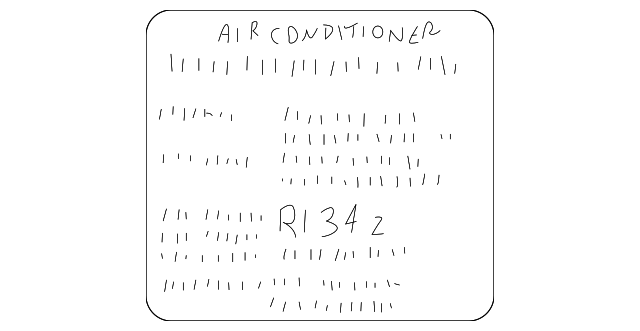 AIR CONDITIONER
R134a